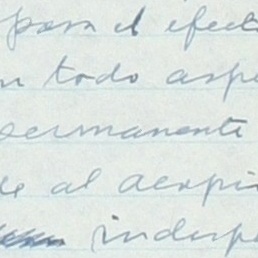 para el efect
n todo aspe
permanente
de al acopi
indisp